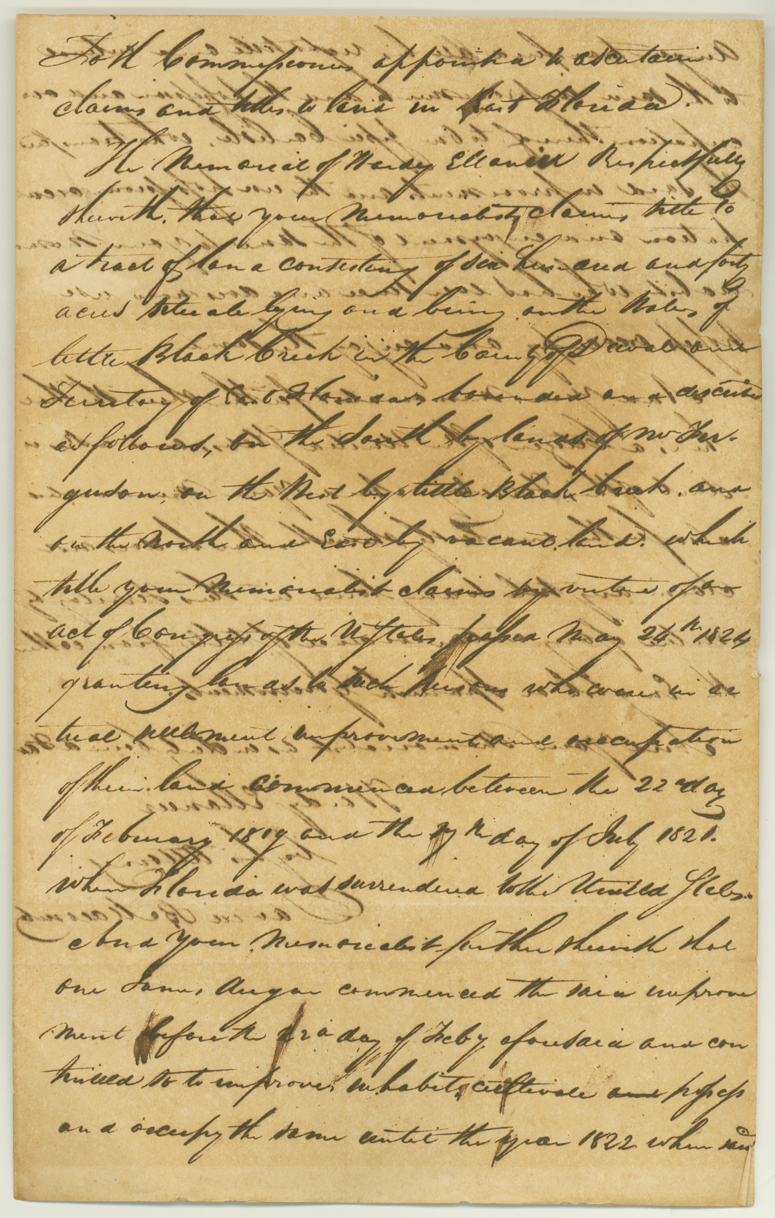 To th Commissioners appointed to ascertain
claims and titles to land in East Florida.
The Memorial of Hardy Respectfully
sheweth, that your Memorialist, claims title to
a tract of land consisting of six hundred and forty
acres situate lying and being on the Waters of
little Black Creek in the County of Duval and
Territory of East Florida, bounded and described
as follows, on the South by lands of Mr Fur-
guson, on the West by little Black Creek, and
on the North and East by vacant land. which
title your Memorialist claims by virtue of an
act of Congress of the U States passed May 24th 1824
granting lands to such persons who were in ac
tual settlement improvement and occupation
of their land commenced between the 22nd day
of February 1819 and the 17th day of July 1821.
when Florida was surrendered to the United States.
And your Memorialist further sheweth that
one James commenced the said improve
ment before the 22d day of Feby aforesaid and con
tinued so to improve, inhabit, cultivate and possess
and occupy the same until the year 1822 when said